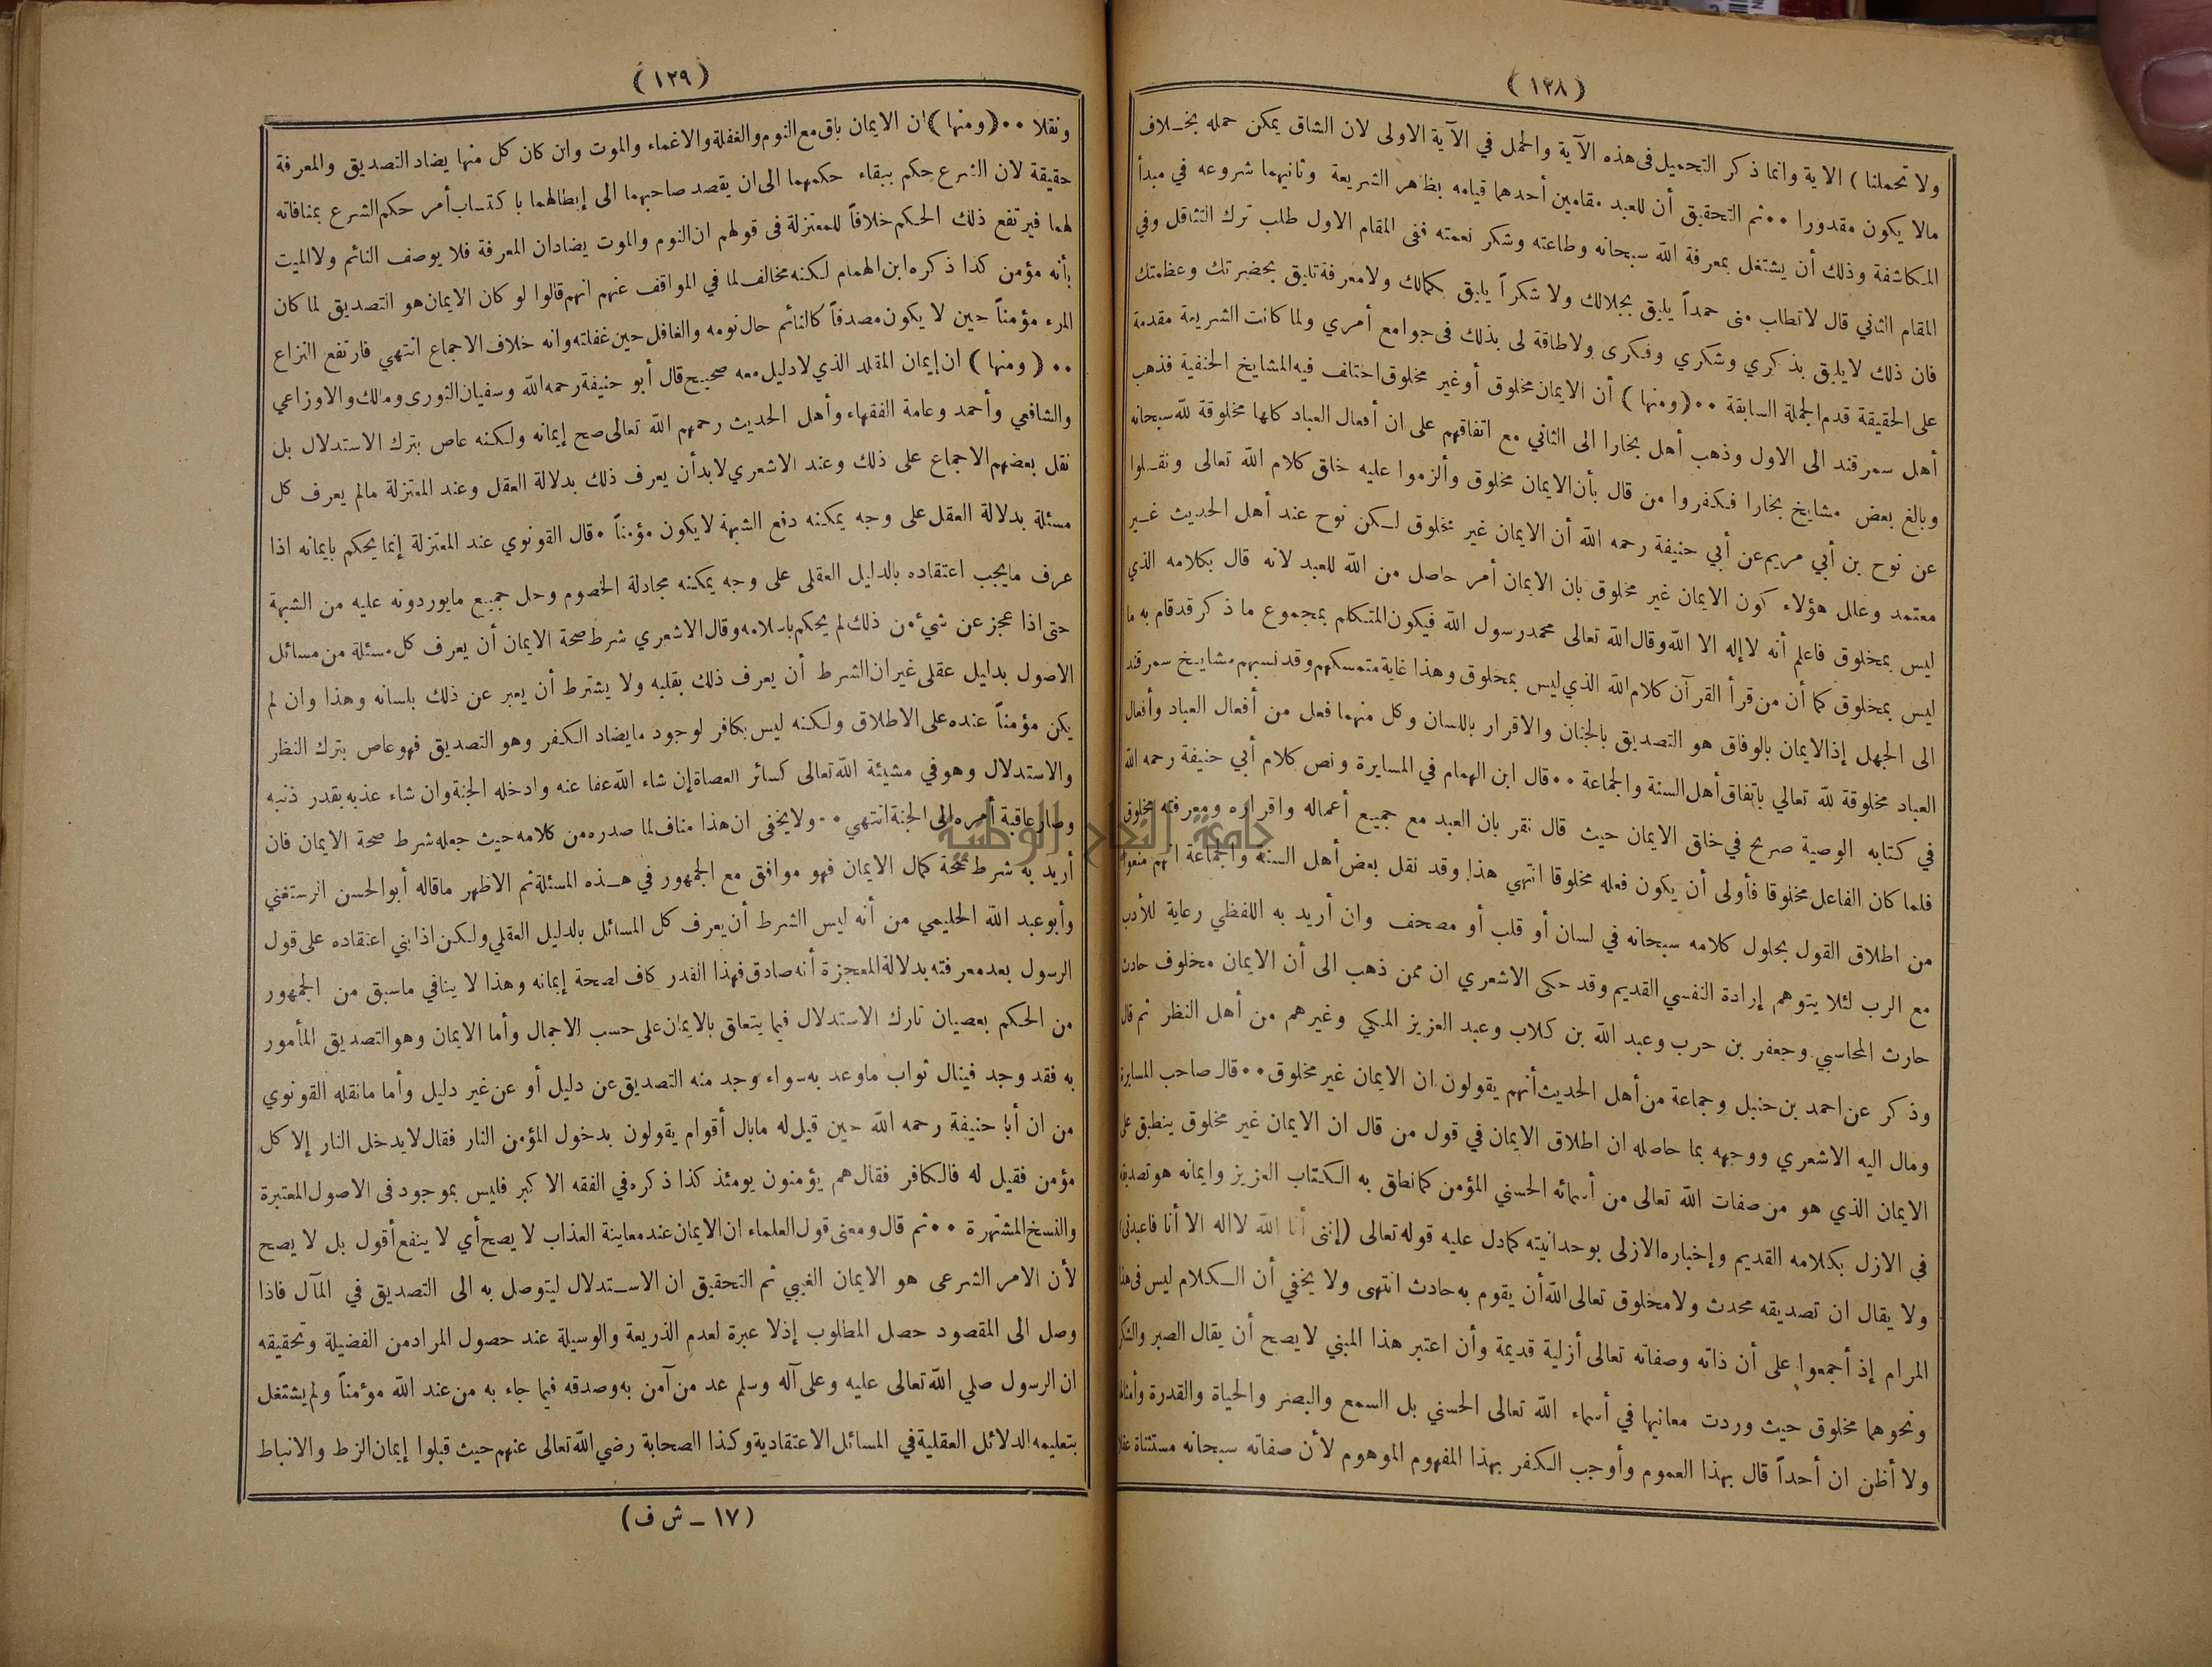 (١٢٨)
ولا تحملنا ) الاية وانما ذكر التحميل فى هذه الآية والحمل في الآية الاولى لان الشاق يمكن حمله بخـلاف
مالا يكون مقدورا ٠٠ ثم التحقيق أن للعبد مقامين أحدهما قيامه بظاهر الشريعة وثانيهما شروعه في مبدأ
المكاشفة وذلك أن يشتغل بمعرفة الله سبحانه وطاعته وشكر نعمته ففى المقام الاول طلب ترك التثاقل وفي
المقام الثاني قال لا تطلب منى حمداً يليق بجلالك ولا شكراً يليق بكمالك ولا معرفة تليق بحضرتك وعظمتك
فان ذلك لا يليق بذكري وشكري وفكرى ولا طاقة لى بذلك فى جوامع أمري ولما كانت الشريعة مقدمة
على الحقيقة قدم الجملة السابقة ٠٠ ( ومنها ) أن الايمان مخلوق أو غير مخلوق اختلف فيه المشايخ الحنفية فذهب
أهل سمرقند الى الاول وذهب أهل بخارا الى الثاني مع اتفاقهم على ان أفعال العباد كلها مخلوقة لله سبحانه
وبالغ بعض مشايخ بخارا فكفروا من قال بأن الايمان مخلوق وألزموا عليه خلق كلام الله تعالى ونقـلوا
عن نوح بن أبي مريم عن أبي حنيفة رحمه الله أن الايمان غير مخلوق لكن نوح عند أهل الحديث غـير
معتمد وعلل هؤلاء كون الايمان غير مخلوق بان الايمان أمر حاصل من الله للعبد لانه قال بكلامه الذي
ليس بمخلوق فاعلم أنه لا إله الا الله وقال الله تعالى محمد رسول الله فيكون المتكلم بمجموع ما ذكر قد قام به ما
ليس بمخلوق كما أن من قرأ القرآن كلام الله الذي ليس بمخلوق وهذا غاية متمسكهم وقد نسبهم مشايخ سمرقند
الى الجهل إذ الايمان بالوفاق هو التصديق بالجنان والاقرار باللسان وكل منهما فعل من أفعال العباد وأفعال
العباد مخلوقة لله تعالي باتفاق أهل السنة والجماعة ٠٠ قال ابن الهمام في المسايرة ونص كلام أبي حنيفة رحمه الله
في كتابه الوصية صريح في خلق الايمان حيث قال نقر بان العبد مع جميع أعماله واقراره ومعرفته مخلوق
فلما كان الفاعل مخلوقا فأولى أن يكون فعله مخلوقا انتهي هذا وقد نقل بعض أهل السنة والجماعة انهم منعوا
من اطلاق القول بحلول كلامه سبحانه في لسان أو قلب أو مصحف وان أريد به اللفظي رعاية للأدب
مع الرب لئلا يتوهم إرادة النفسي القديم وقد حكى الاشعري ان ممن ذهب الى أن الايمان مخلوق حادث
حارث المحاسبي وجعفر بن حرب وعبد الله بن كلاب وعبد العزيز المكي وغيرهم من أهل النظر ثم قال
وذكر عن احمد بن حنبل وجماعة من أهل الحديث أنهم يقولون ان الايمان غير مخلوق ٠٠ قال صاحب المسايرة
ومال اليه الاشعري ووجهه بما حاصله ان اطلاق الايمان في قول من قال ان الايمان غير مخلوق ينطبق على
الايمان الذي هو من صفات الله تعالى من أسمائه الحسني المؤمن كما نطق به الكتاب العزيز وايمانه هو تصديقه
في الازل بكلامه القديم وإخباره الازلى بوحدانيته كما دل عليه قوله تعالى ( إننى أنا الله لا اله الا أنا فاعبدني )
ولا يقال ان تصديقه محدث ولا مخلوق تعالى الله أن يقوم به حادث انتهى ولا يخفي أن الـكلام ليس فى هذا
المرام إذ أجمعوا على أن ذاته وصفاته تعالى أزلية قديمة وأن اعتبر هذا المبني لا يصح أن يقال الصبر والشكر
ونحوهما مخلوق حيث وردت معانيها في أسماء الله تعالى الحسني بل السمع والبصر والحياة والقدرة وأمثالها
ولا أظن ان أحداً قال بهذا العموم وأوجب الكفر بهذا المفهوم الموهوم لأن صفاته سبحانه مستثناة عقلا
(١٢٩)
ونقلا ٠٠ ( ومنها ) ان الايمان باق مع النوم والغفلة والاغماء والموت وان كان كل منها يضاد التصديق والمعرفة
حقيقة لان الشرع حكم ببقاء حكمهما الى ان يقصد صاحبهما الى إبطالهما باكتساب أمر حكم الشرع بمنافاته
لهما فيرتفع ذلك الحكم خلافاً للمعتزلة فى قولهم ان النوم والموت يضادان المعرفة فلا يوصف النائم ولا الميت
بأنه مؤمن كذا ذكره ابن الهمام لكنه مخالف لما في المواقف عنهم انهم قالوا لو كان الايمان هو التصديق لما كان
المرء مؤمناً حين لا يكون مصدقاً كالنائم حال نومه والغافل حين غفلته وانه خلاف الاجماع انتهي فارتفع النزاع
٠٠ ( ومنها ) ان إيمان المقلد الذي لا دليل معه صحيح قال أبو حنيفة رحمه الله وسفيان الثورى ومالك والاوزاعي
والشافعي وأحمد وعامة الفقهاء وأهل الحديث رحمهم الله تعالى صح إيمانه ولكنه عاص بترك الاستدلال بل
نقل بعضهم الاجماع على ذلك وعند الاشعري لا بد أن يعرف ذلك بدلالة العقل وعند المعتزلة مالم يعرف كل
مسئلة بدلالة العقل على وجه يمكنه دفع الشبهة لا يكون مؤمناً ٠ قال القونوي عند المعتزلة إنما يحكم بايمانه اذا
عرف ما يجب اعتقاده بالدليل العقلى على وجه يمكنه مجادلة الخصوم وحل جميع ما يوردونه عليه من الشبهة
حتى اذا عجز عن شيء من ذلك لم يحكم باسلامه وقال الاشعري شرط صحة الايمان أن يعرف كل مسئلة من مسائل
الاصول بدليل عقلى غير ان الشرط أن يعرف ذلك بقلبه ولا يشترط أن يعبر عن ذلك بلسانه وهذا وان لم
يكن مؤمناً عنده على الاطلاق ولكنه ليس بكافر لوجود ما يضاد الكفر وهو التصديق فهو عاص بترك النظر
والاستدلال وهو في مشيئة الله تعالى كسائر العصاة إن شاء الله عفا عنه وادخله الجنة وان شاء عذبه بقدر ذنبه
وصار عاقبة أمره إلى الجنة انتهي ٠٠ ولا يخفى ان هذا مناف لما صدره من كلامه حيث جعله شرط صحة الايمان فان
أريد به شرط صحة كمال الايمان فهو موافق مع الجمهور في هـذه المسئلة ثم الاظهر ما قاله أبو الحسن الرستغني
وأبو عبد الله الحليمي من أنه ليس الشرط أن يعرف كل المسائل بالدليل العقلي ولكن اذا بني اعتقاده على قول
الرسول بعد معرفته بدلالة المعجزة أنه صادق فهذا القدر كاف لصحة إيمانه وهذا لا ينافي ما سبق من الجمهور
من الحكم بعصيان تارك الاستدلال فيما يتعلق بالايمان على حسب الاجمال وأما الايمان وهو التصديق المأمور
به فقد وجد فينال ثواب ما وعد به سواء وجد منه التصديق عن دليل أو عن غير دليل وأما ما نقله القونوي
من ان أبا حنيفة رحمه الله حين قيل له ما بال أقوام يقولون بدخول المؤمن النار فقال لا يدخل النار إلا كل
مؤمن فقيل له فالكافر فقال هم يؤمنون يومئذ كذا ذكره في الفقه الاكبر فليس بموجود فى الاصول المعتبرة
والنسخ المشتهرة ٠٠ ثم قال ومعنى قول العلماء ان الايمان عند معاينة العذاب لا يصح أي لا ينفع أقول بل لا يصح
لأن الامر الشرعى هو الايمان الغيبي ثم التحقيق ان الاسـتدلال ليتوصل به الى التصديق في المآل فاذا
وصل الى المقصود حصل المطلوب إذ لا عبرة لعدم الذريعة والوسيلة عند حصول المراد من الفضيلة وتحقيقه
ان الرسول صلي الله تعالى عليه وعلى آله وسلم عد من آمن به وصدقه فيما جاء به من عند الله مؤمناً ولم يشتغل
بتعليمه الدلائل العقلية في المسائل الاعتقادية وكذا الصحابة رضي الله تعالى عنهم حيث قبلوا إيمان الزط والانباط
(١٧ ــ ش ف)
جامعة النجاح الوطنية